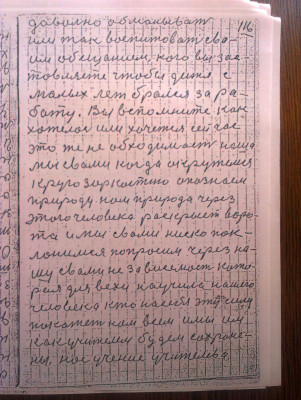 116
довольно обманывать
или так воспитовать сво-
им обещанием, кого вы зас-
товляете чтобы дитя с
малых лет брался за ра-
боту. Вы вспомните как
хотелос или хочется сейчас
это же необходимост наша
мы свами когда окружемся
кругозоркостию опознаем
природу. нам природа через
этого человека раскроет воро-
та и мы свами ниско пок-
лонимся попросим через на-
шу свами не зависемост кото-
рая для всех научила нашого
человека кто на себя эту силу
покажет нам всем и мы им
как учителем будем сохране-
ны. нас учение учитель